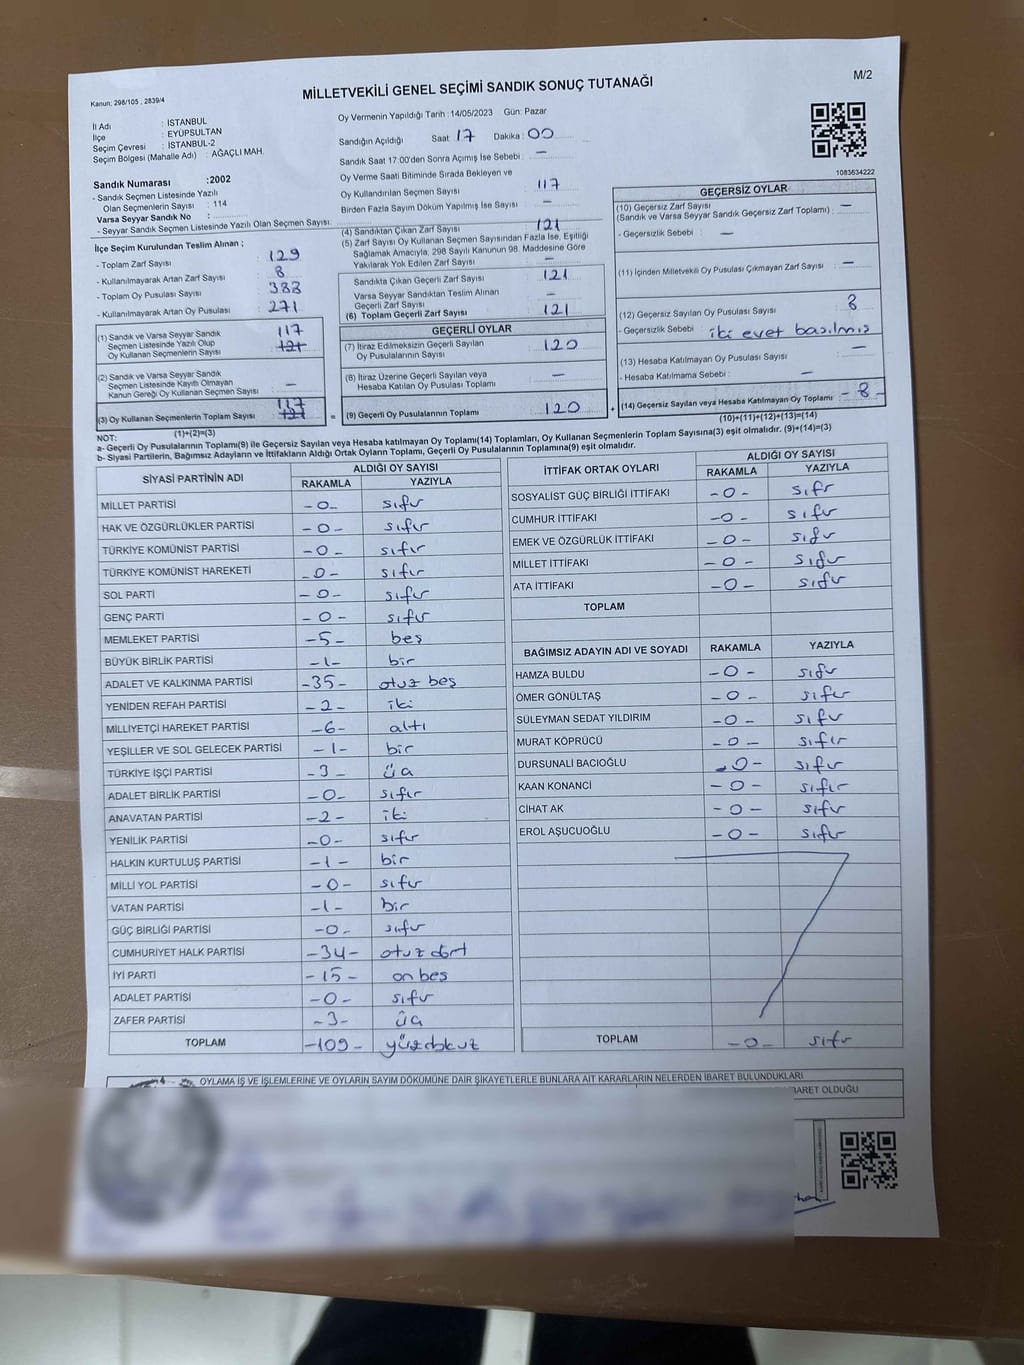 M/2
MİLLETVEKİLİ GENEL SEÇİMİ SANDIK SONUÇ TUTANAĞI
Kanun: 298/105 , 2839/4
İl Adı : İSTANBUL
İlçe : EYÜPSULTAN
Seçim Çevresi : İSTANBUL-2
Seçim Bölgesi (Mahalle Adı) : AĞAÇLI MAH.
Sandık Numarası :2002
- Sandık Seçmen Listesinde Yazılı
Olan Seçmenlerin Sayısı : 114
Varsa Seyyar Sandık No :
- Seyyar Sandık Seçmen Listesinde Yazılı Olan Seçmen Sayısı:
Oy Vermenin Yapıldığı Tarih :14/05/2023 Gün: Pazar
Sandığın Açıldığı Saat 17 Dakika : 00
Sandık Saat 17:00'den Sonra Açımış İse Sebebi : —
Oy Verme Saati Bitiminde Sırada Bekleyen ve
Oy Kullandırılan Seçmen Sayısı : 117
Birden Fazla Sayım Döküm Yapılmış İse Sayısı : —
1083634222
İlçe Seçim Kurulundan Teslim Alınan ;
- Toplam Zarf Sayısı : 129
- Kullanılmayarak Artan Zarf Sayısı : 8
- Toplam Oy Pusulası Sayısı : 388
- Kullanılmayarak Artan Oy Pusulası : 271
(1) Sandık ve Varsa Seyyar Sandık
Seçmen Listesinde Yazılı Olup
Oy Kullanan Seçmenlerin Sayısı : 117 121
(2) Sandık ve Varsa Seyyar Sandık
Seçmen Listesinde Kayıtlı Olmayan
Kanun Gereği Oy Kullanan Seçmen Sayısı : —
(3) Oy Kullanan Seçmenlerin Toplam Sayısı : 117 121 =
(1)+(2)=(3)
(4) Sandıktan Çıkan Zarf Sayısı : 121
(5) Zarf Sayısı Oy Kullanan Seçmen Sayısından Fazla İse, Eşitliği
Sağlamak Amacıyla, 298 Sayılı Kanunun 98. Maddesine Göre
Yakılarak Yok Edilen Zarf Sayısı : —
Sandıkta Çıkan Geçerli Zarf Sayısı : 121
Varsa Seyyar Sandıktan Teslim Alınan
Geçerli Zarf Sayısı : —
(6) Toplam Geçerli Zarf Sayısı : 121
GEÇERLİ OYLAR
(7) İtiraz Edilmeksizin Geçerli Sayılan
Oy Pusulalarının Sayısı : 120
(8) İtiraz Üzerine Geçerli Sayılan veya
Hesaba Katılan Oy Pusulası Toplamı : —
(9) Geçerli Oy Pusulalarının Toplamı : 120 +
GEÇERSİZ OYLAR
(10) Geçersiz Zarf Sayısı : —
(Sandık ve Varsa Seyyar Sandık Geçersiz Zarf Toplamı)
- Geçersizlik Sebebi : —
(11) İçinden Milletvekili Oy Pusulası Çıkmayan Zarf Sayısı : —
(12) Geçersiz Sayılan Oy Pusulası Sayısı : 8
- Geçersizlik Sebebi : iki evet basılmış
(13) Hesaba Katılmayan Oy Pusulası Sayısı : —
- Hesaba Katılmama Sebebi : —
(14) Geçersiz Sayılan veya Hesaba Katılmayan Oy Toplamı : - 8 -
(10)+(11)+(12)+(13)=(14)
NOT:
a- Geçerli Oy Pusulalarının Toplamı(9) ile Geçersiz Sayılan veya Hesaba katılmayan Oy Toplamı(14) Toplamları, Oy Kullanan Seçmenlerin Toplam Sayısına(3) eşit olmalıdır. (9)+(14)=(3)
b- Siyasi Partilerin, Bağımsız Adayların ve İttifakların Aldığı Ortak Oyların Toplamı, Geçerli Oy Pusulalarının Toplamına(9) eşit olmalıdır.
SİYASİ PARTİNİN ADI ALDIĞI OY SAYISI
RAKAMLA YAZIYLA
MİLLET PARTİSİ -0- sıfır
HAK VE ÖZGÜRLÜKLER PARTİSİ -0- sıfır
TÜRKİYE KOMÜNİST PARTİSİ -0- sıfır
TÜRKİYE KOMÜNİST HAREKETİ -0- sıfır
SOL PARTİ -0- sıfır
GENÇ PARTİ -0- sıfır
MEMLEKET PARTİSİ -5- beş
BÜYÜK BİRLİK PARTİSİ -1- bir
ADALET VE KALKINMA PARTİSİ -35- otuz beş
YENİDEN REFAH PARTİSİ -2- iki
MİLLİYETÇİ HAREKET PARTİSİ -6- altı
YEŞİLLER VE SOL GELECEK PARTİSİ -1- bir
TÜRKİYE İŞÇİ PARTİSİ -3- üç
ADALET BİRLİK PARTİSİ -0- sıfır
ANAVATAN PARTİSİ -2- iki
YENİLİK PARTİSİ -0- sıfır
HALKIN KURTULUŞ PARTİSİ -1- bir
MİLLİ YOL PARTİSİ -0- sıfır
VATAN PARTİSİ -1- bir
GÜÇ BİRLİĞİ PARTİSİ -0- sıfır
CUMHURİYET HALK PARTİSİ -34- otuz dört
İYİ PARTİ -15- on beş
ADALET PARTİSİ -0- sıfır
ZAFER PARTİSİ -3- üç
TOPLAM -109- yüzdokuz
İTTİFAK ORTAK OYLARI ALDIĞI OY SAYISI
RAKAMLA YAZIYLA
SOSYALİST GÜÇ BİRLİĞİ İTTİFAKI -0- sıfır
CUMHUR İTTİFAKI -0- sıfır
EMEK VE ÖZGÜRLÜK İTTİFAKI -0- sıfır
MİLLET İTTİFAKI -0- sıfır
ATA İTTİFAKI -0- sıfır
TOPLAM
BAĞIMSIZ ADAYIN ADI VE SOYADI RAKAMLA YAZIYLA
HAMZA BULDU -0- sıfır
ÖMER GÖNÜLTAŞ -0- sıfır
SÜLEYMAN SEDAT YILDIRIM -0- sıfır
MURAT KÖPRÜCÜ -0- sıfır
DURSUNALİ BACIOĞLU -0- sıfır
KAAN KONANCİ -0- sıfır
CİHAT AK -0- sıfır
EROL AŞUCUOĞLU -0- sıfır
TOPLAM -0- sıfır
OYLAMA İŞ VE İŞLEMLERİNE VE OYLARIN SAYIM DÖKÜMÜNE DAİR ŞİKAYETLERLE BUNLARA AİT KARARLARIN NELERDEN İBARET BULUNDUKLARI
BARET OLDUĞU